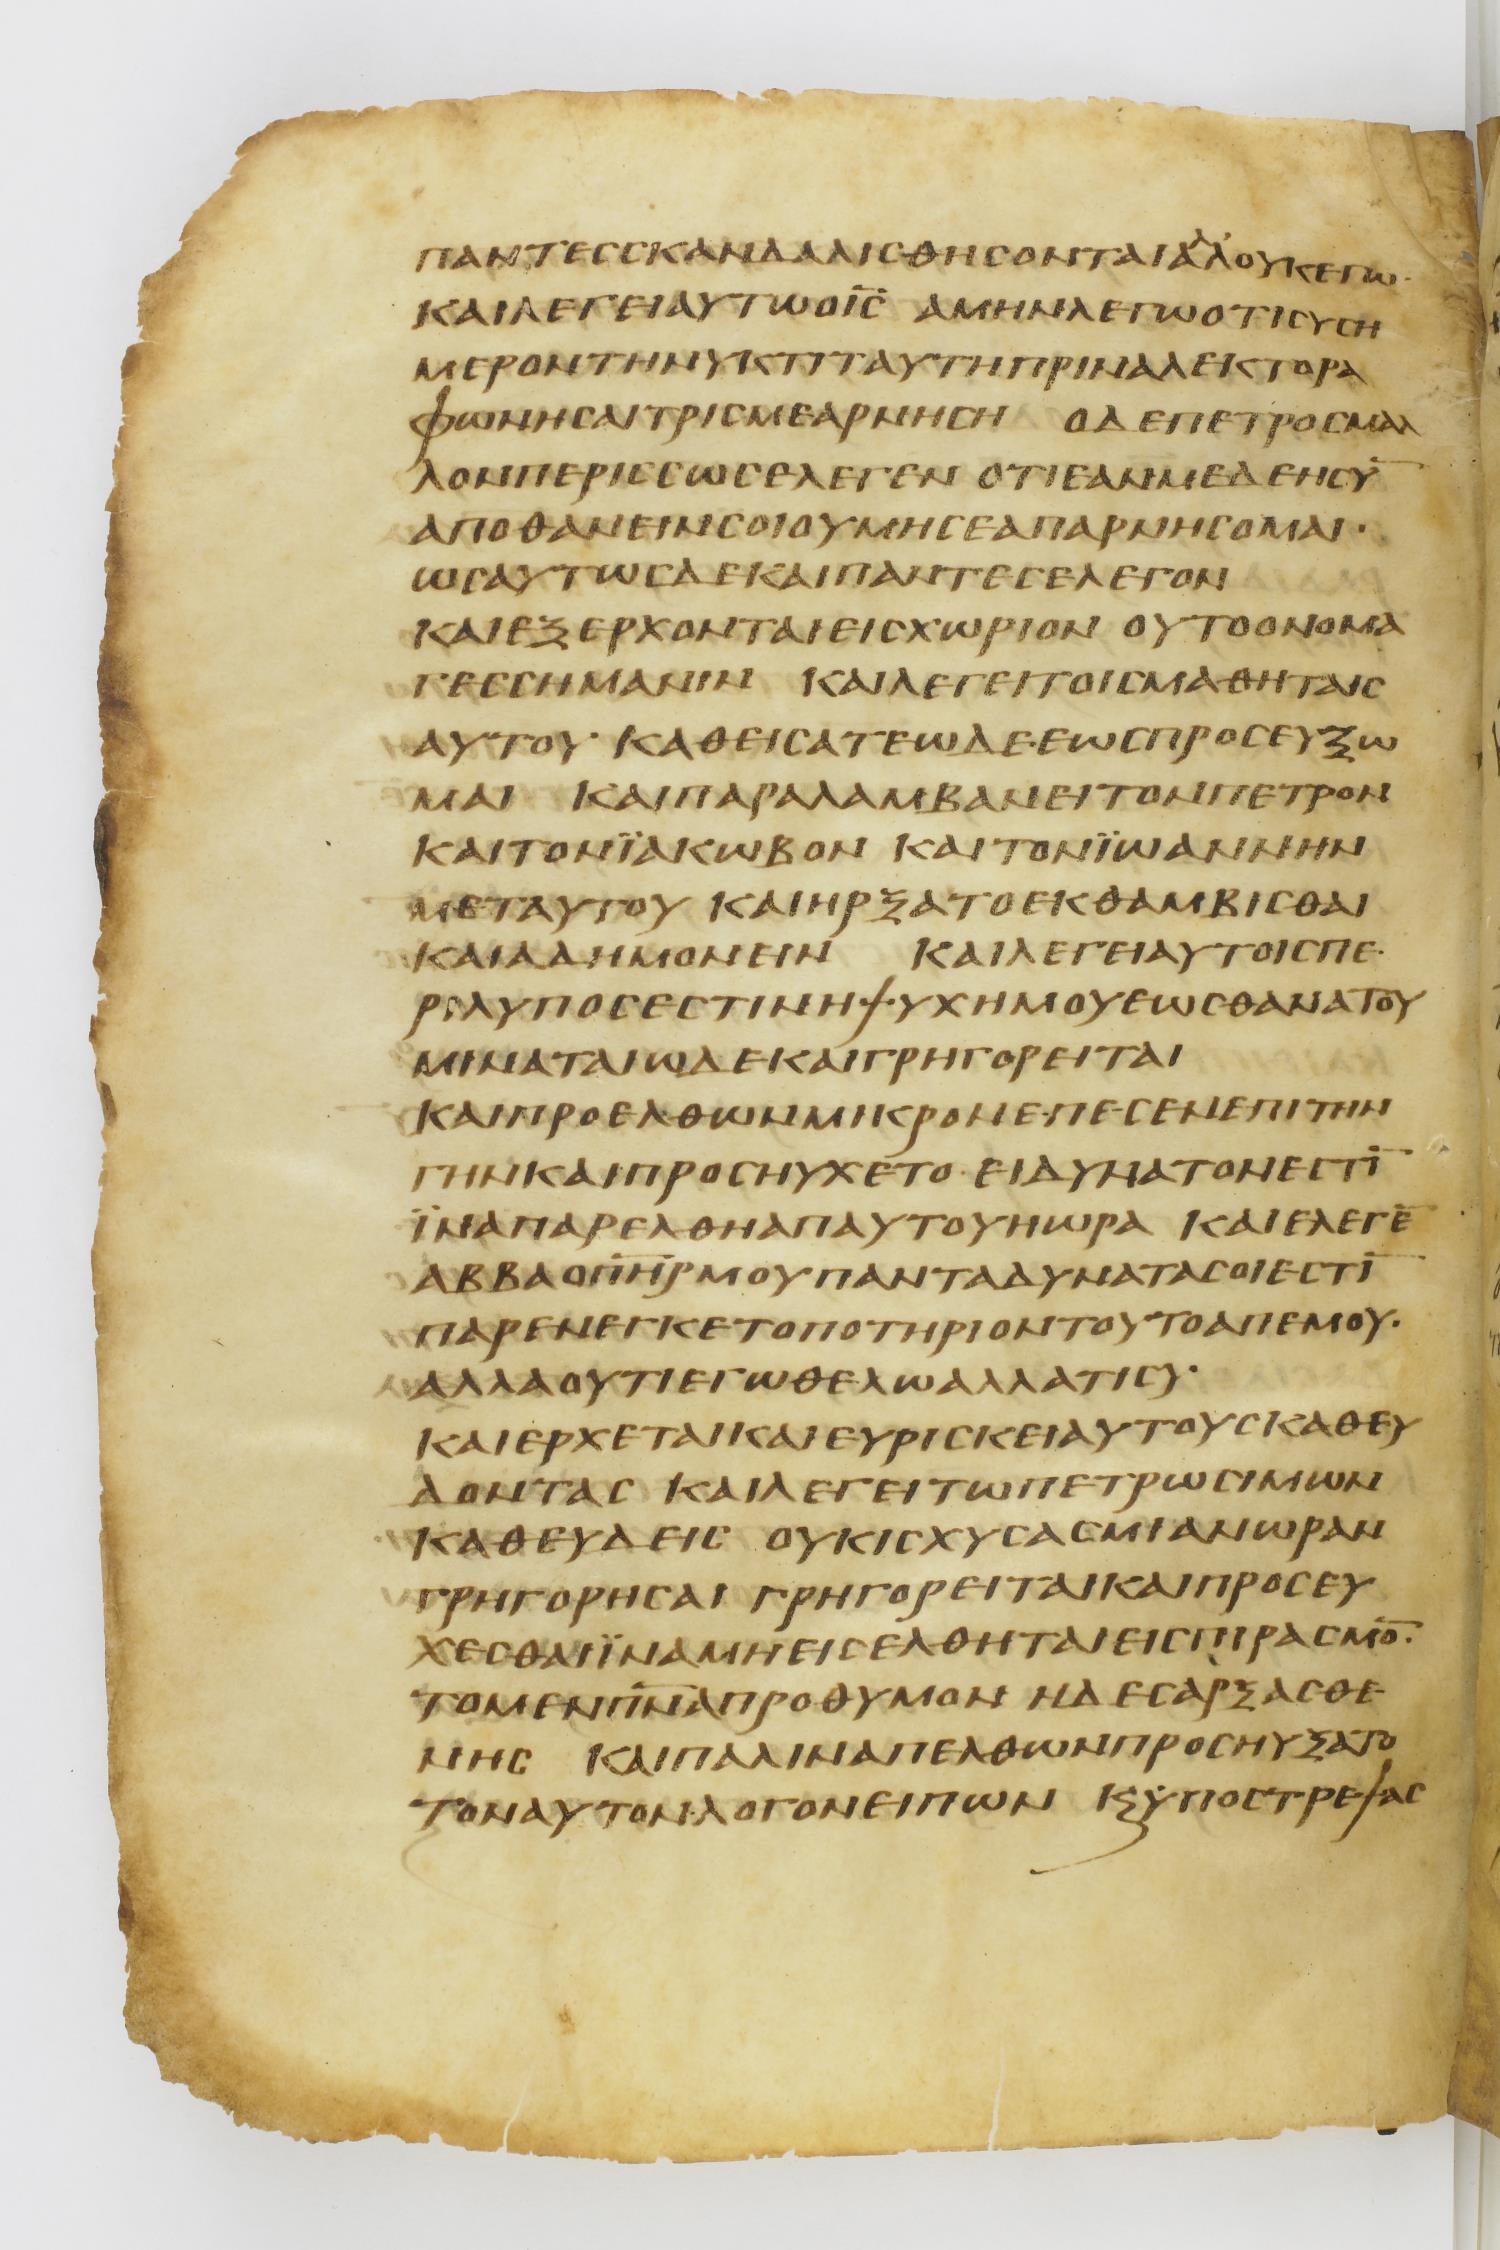 ΠΑΝΤΕССΚΑΝΔΑΛΙСΘΗСΟΝΤΑΙΑΛ᾽ΛΟΥΚΕΓΩ·
ΚΑΙΛΕΓΕΙΑΥΤΩΟΙ̅С̅ ΑΜΗΝΛΕΓΩΟΤΙСΥСΗ
ΜΕΡΟΝΤΗΝΥΚΤΙΤΑΥΤΗΠΡΙΝΑΛΕΚΤΟΡΑ
ΦΩΝΗСΑΙΤΡΙСΜΕΑΡΝΗСΗ ΟΔΕΠΕΤΡΟСΜΑΛ
ΛΟΝΠΕΡΙССΩСΕΛΕΓΕΝ ΟΤΙΕΑΝΜΕΔΕΗСΥ̅
ΑΠΟΘΑΝΕΙΝСΟΙΟΥΜΗСΕΑΠΑΡΝΗСΟΜΑΙ·
ΩСΑΥΤΩСΔΕΚΑΙΠΑΝΤΕСΕΛΕΓΟΝ
ΚΑΙΕΞΕΡΧΟΝΤΑΙΕΙСΧΩΡΙΟΝ ΟΥΤΟΟΝΟΜΑ
ΓΕССΗΜΑΝΙΝ ΚΑΙΛΕΓΕΙΤΟΙСΜΑΘΗΤΑΙС
ΑΥΤΟΥ ΚΑΘΕΙСΑΤΕΩΔΕ·ΕΩСΠΡΟСΕΥΞΩ
ΜΑΙ ΚΑΙΠΑΡΑΛΑΜΒΑΝΕΙΤΟΝΠΕΤΡΟΝ
ΚΑΙΤΟΝΪΑΚΩΒΟΝ ΚΑΙΤΟΝΪΩΑΝΝΗΝ
ΜΕΤΑΥΤΟΥ ΚΑΙΗΡΞΑΤΟΕΚΘΑΜΒΙСΘΑΙ
ΚΑΙΑΔΗΜΟΝΕΙΝ ΚΑΙΛΕΓΕΙΑΥΤΟΙСΠΕ
ΡΙΛΥΠΟСΕСΤΙΝΗΨΥΧΗΜΟΥΕΩСΘΑΝΑΤΟΥ
ΜΙΝΑΤΑΙΩΔΕΚΑΙΓΡΗΓΟΡΕΙΤΑΙ
ΚΑΙΠΡΟΕΛΘΩΝΜΙΚΡΟΝΕΠΕСΕΝΕΠΙΤΗΝ
ΓΗΝΚΑΙΠΡΟСΗΥΧΕΤΟ ΕΙΔΥΝΑΤΟΝΕСΤΙ̅
ΪΝΑΠΑΡΕΛΘΗΑΠΑΥΤΟΥΗΩΡΑ ΚΑΙΕΛΕΓΕ̅
ΑΒΒΑΟΠ̅Η̅Ρ̅ΜΟΥΠΑΝΤΑΔΥΝΑΤΑСΟΙΕСΤΙ̅
ΠΑΡΕΝΕΓΚΕΤΟΠΟΤΗΡΙΟΝΤΟΥΤΟΑΠΕΜΟΥ·
ΑΛΛΑΟΥΤΙΕΓΩΘΕΛΩΑΛΛΑΤΙСΥ·
ΚΑΙΕΡΧΕΤΑΙΚΑΙΕΥΡΙСΚΕΙΑΥΤΟΥСΚΑΘΕΥ
ΔΟΝΤΑС ΚΑΙΛΕΓΕΙΤΩΠΕΤΡΩСΙΜΩΝ
ΚΑΘΕΥΔΕΙС ΟΥΚΙСΧΥСΑСΜΙΑΝΩΡΑΝ
ΓΡΗΓΟΡΗСΑΙ ΓΡΗΓΟΡΕΙΤΑΙΚΑΙΠΡΟСΕΥ
ΧΕСΘΑΙΪΝΑΜΗΕΙСΕΛΘΗΤΑΙΕΙСΠΙΡΑСΜΟ̅·
ΤΟΜΕΝΠ̅Ν̅Α̅ΠΡΟΘΥΜΟΝ ΗΔΕСΑΡΞΑСΘΕ
ΝΗС ΚΑΙΠΑΛΙΝΑΠΕΛΘΩΝΠΡΟСΗΥΞΑΤΟ
ΤΟΝΑΥΤΟΝΛΟΓΟΝΕΙΠΩΝ ΚϚΫΠΟСΤΡΕΨΑС